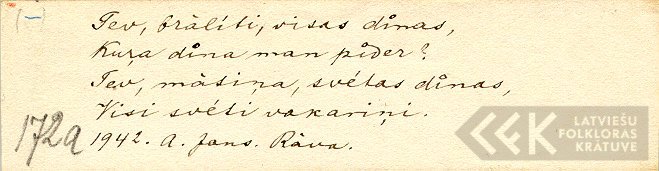 (-)
Tev, brālīti, visas dīnas,
Kuŗa dīna man pīder?
Tev, māsiņa, svētas dīnas,
Visi svēti vakariņi.
172a
1942. A. Jans. Rāva.
LATVIEŠU
FOLKLORAS
KRĀTUVE